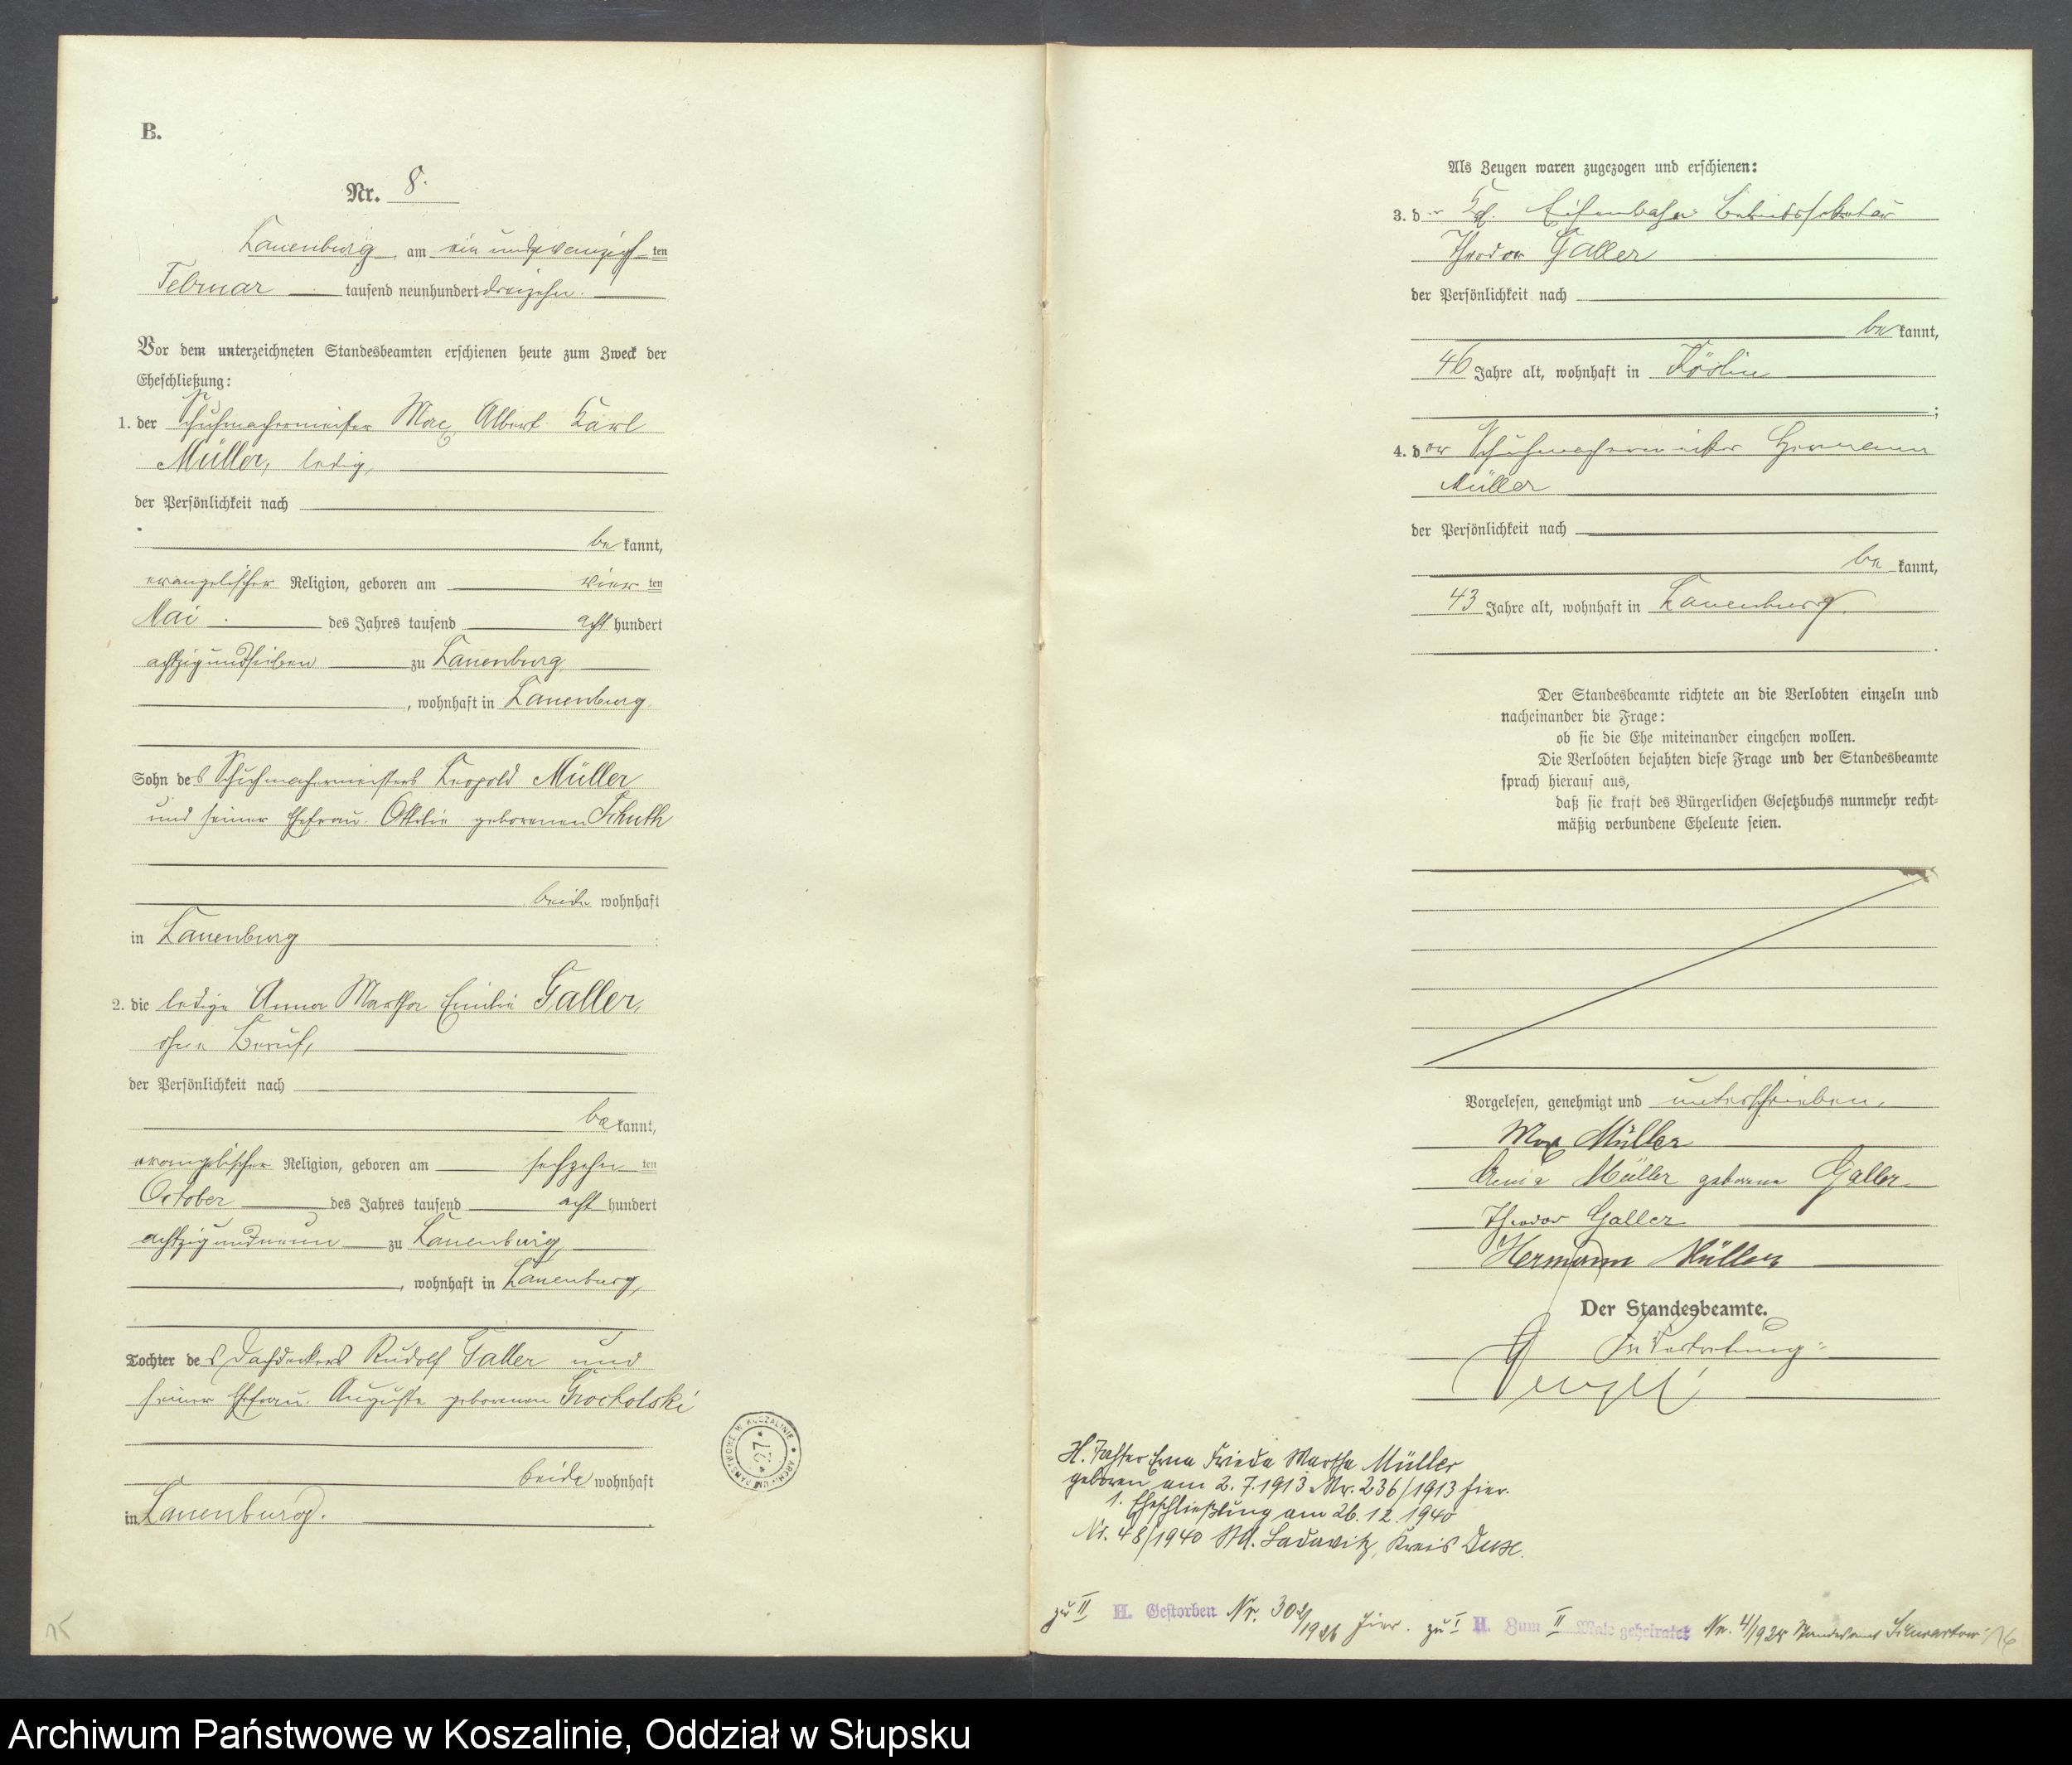 B.
Nr. 8.
Lauenburg, am ein und zwanzigsten
Februar tausend neunhundert dreizehn.
Vor dem unterzeichneten Standesbeamten erschienen heute zum Zweck der
Eheschließung:
1. der Schuhmachermeister Max Albert Karl
Müller, ledig,
der Persönlichkeit nach
be kannt,
evangelischer Religion, geboren am vier ten
Mai des Jahres tausend acht hundert
achtzig und sieben zu Lauenburg
, wohnhaft in Lauenburg
Sohn des Schuhmachermeisters Leopold Müller
und seiner Ehefrau Ottilie geborenen Schuth
beide wohnhaft
in Lauenburg
2. die ledige Anna Martha Emilie Galler,
ohne Beruf,
der Persönlichkeit nach
be kannt,
evangelischer Religion, geboren am sechzehn ten
October des Jahres tausend acht hundert
achtzig und neun zu Lauenburg
, wohnhaft in Lauenburg,
Tochter des Dachdeckers Rudolf Galler und
seiner Ehefrau Auguste geborenen Grocholski
beide wohnhaft
in Lauenburg.
ARCHIWUM PAŃSTWOWE W KOSZALINIE
* 27 *
15
Als Zeugen waren zugezogen und erschienen:
3. der Kgl. Eisenbahn Betriebssekretär
Theodor Galler
der Persönlichkeit nach
be kannt,
46 Jahre alt, wohnhaft in Köslin
;
4. der Schuhmachermeister Hermann
Müller
der Persönlichkeit nach
be kannt,
43 Jahre alt, wohnhaft in Lauenburg
.
Der Standesbeamte richtete an die Verlobten einzeln und
nacheinander die Frage:
ob sie die Ehe miteinander eingehen wollen.
Die Verlobten bejahten diese Frage und der Standesbeamte
sprach hierauf aus,
daß sie kraft des Bürgerlichen Gesetzbuchs nunmehr recht-
mäßig verbundene Eheleute seien.
Vorgelesen, genehmigt und unterschrieben.
Max Müller
Anna Müller geborene Galler
Theodor Galler
Hermann Müller
Der Standesbeamte.
In Vertretung:
H. Tochter Erna Frieda Martha Müller
geboren am 2.7.1913 Nr. 236/1913 hier.
1. Eheschließung am 26.12.1940
Nr. 48/1940 Kreis
zu II H. Gestorben Nr. 302/1926 hier. zu I H. Zum II Male geheiratet Nr. 4/1928 Standesamt Schwartow
16
Archiwum Państwowe w Koszalinie, Oddział w Słupsku